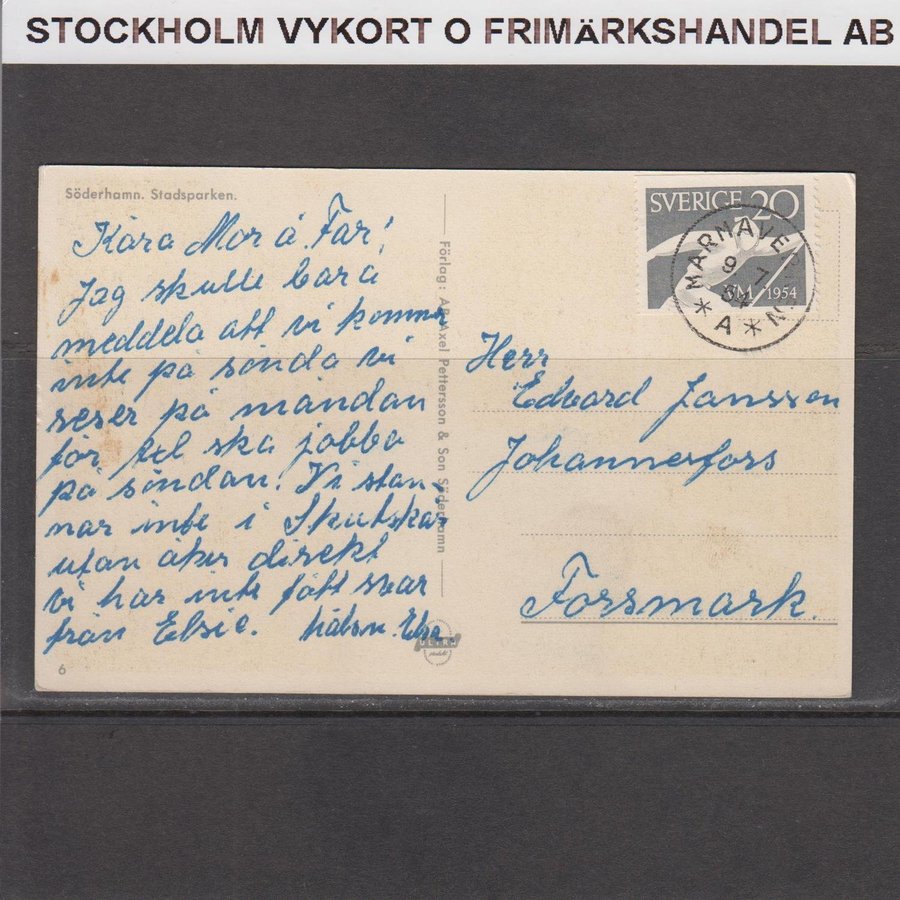 STOCKHOLM VYKORT O FRIMÄRKSHANDEL AB
Söderhamn. Stadsparken.
Kära Mor å Far!
Jag skulle bara
meddela att vi kommer
inte på sönda vi
reser på måndan
för ska jobba
på söndan. Vi stan-
nar inte i Skutskär
utan åker direkt
vi har inte fått svar
från Elsie.
6
Förlag: AB Axel Pettersson & Son Söderhamn
ULTRA
SVERIGE 20
VM 1954
MARMAVE
9 7
54
* A * N.
Herr
Edvard Jansson
Johannesfors
Forsmark.